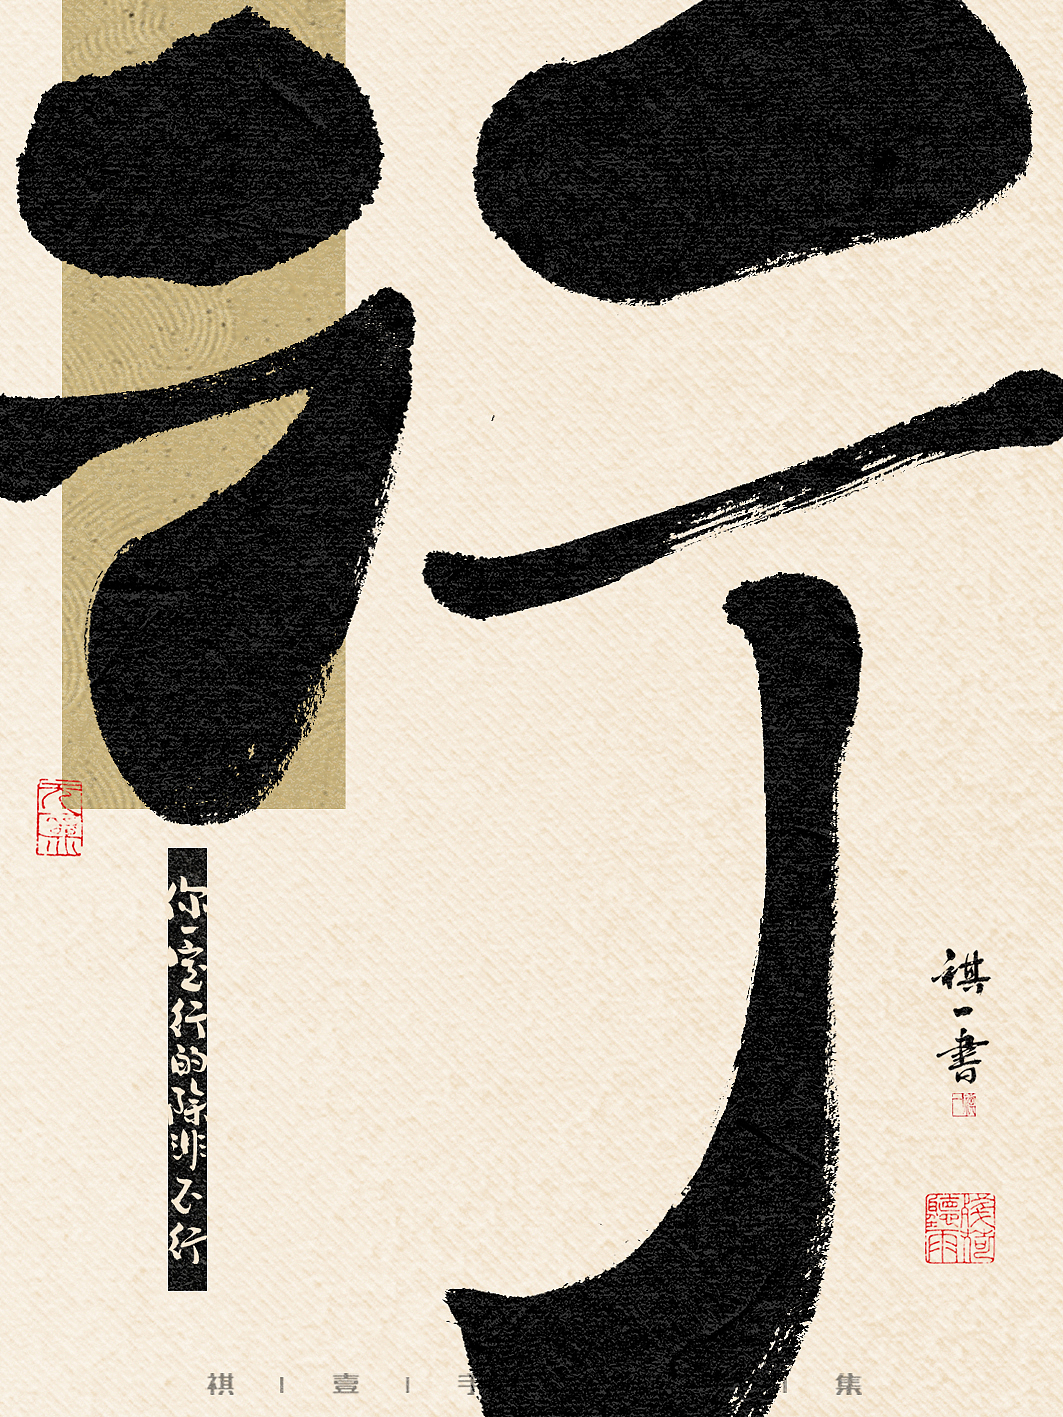 行
你一定行的除非不行
祺一書
殘荷聽雨
祺 壹 手 集